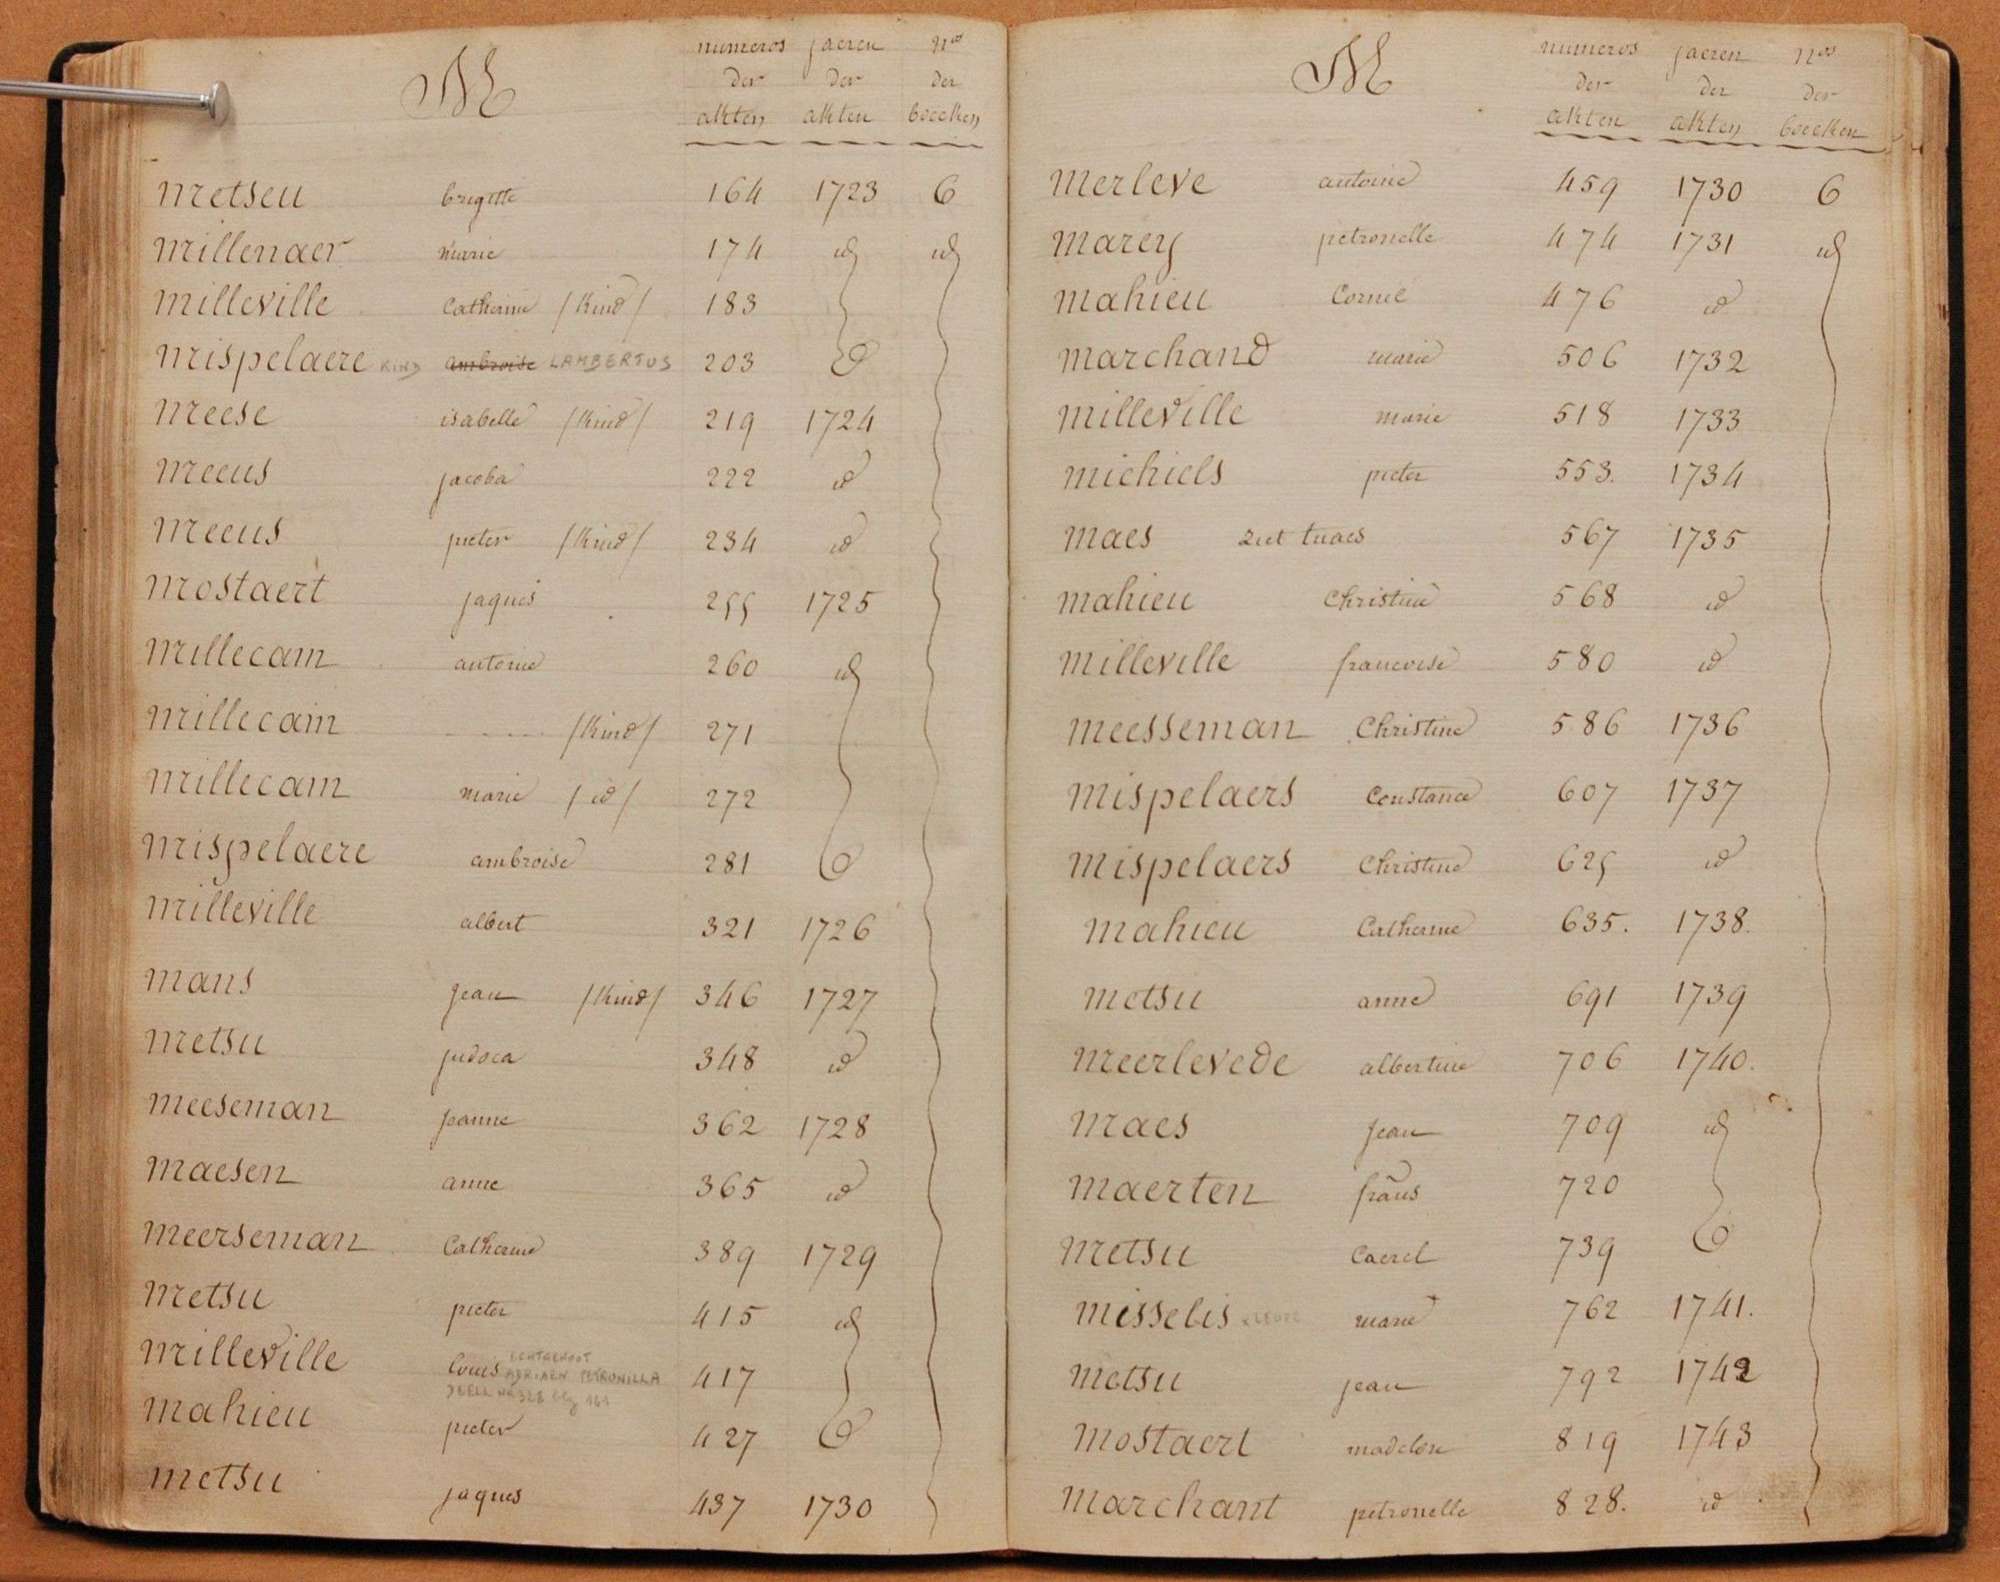 M numeros jaeren nos
der der der
akten akten boecken
metseu brigitte 164 1723 6
millenaer marie 174 id id
milleville catherine /kind/ 183
mispelaere KIND ambroise LAMBERTUS 203 id
meese isabelle /kind/ 219 1724
meeus jacoba 222 id
meeus pieter /kind/ 234 id
mostaert jaques 255 1725
millecam antoine 260 id
millecam ..... /kind/ 271
millecam marie /id/ 272
mispelaere ambroise 281 id
milleville albert 321 1726
mans jean /kind/ 346 1727
metsu judoca 348 id
meeseman jeanne 362 1728
maesen anne 365 id
meerseman catherine 389 1729
metsu pieter 415 id
milleville louis ECHTGENOOT ADRIAEN PETRONILLA 417
mahieu pieter 427 id
metsu jaques 437 1730
M numeros jaeren nos
der der der
akten akten boecken
merleve antoine 459 1730 6
marey petronelle 474 1731 id
mahieu Cornee 476 id
marchand marie 506 1732
milleville marie 518 1733
michiels pieter 553. 1734
maes 567 1735
mahieu christine 568 id
milleville francoise 580 id
meesseman christine 586 1736
mispelaers constance 607 1737
mispelaers christine 625 id
mahieu catherine 635. 1738.
metsu anne 691 1739
meerlevede albertine 706 1740.
maes jean 709 id
maerten frans 720
metsu caerel 739 id
misselis marie 762 1741.
metsu jean 792 1742
mostaert madelene 819 1743
marchant petronelle 828. id